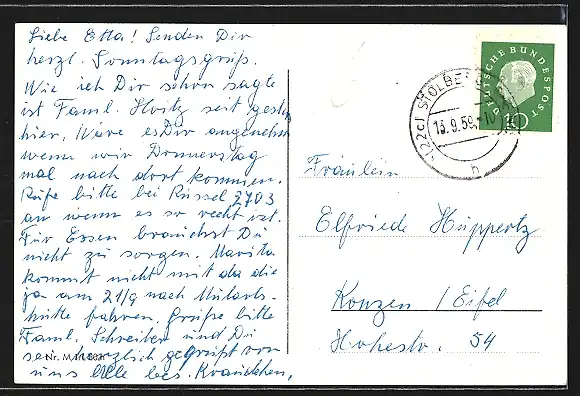 Liebe Etta! Senden Dir
herzl. Sonntagsgrüß.
Wie ich Dir schon sagte
ist Faml. Hoitz seit gestern
hier. Wäre es Dir angenehm
wenn wir Donnerstag
mal nach dort kommen.
Rufe bitte bei Rüssel 2703
an wenn es so recht ist.
Für Essen brauchst Du
nicht zu sorgen. Marita
kommt nicht mit da die
ja am 21/9 nach
hütte fahren. Grüße bitte
Faml. Schreiber und Du
sei herzlich gegrüßt von
uns Alle bes.
Nr. M
(22c) STOLBERG
13.9.59.-10
h
DEUTSCHE BUNDESPOST
10
Fräulein
Elfriede Hüppertz
Konzen / Eifel
Hohestr. 54